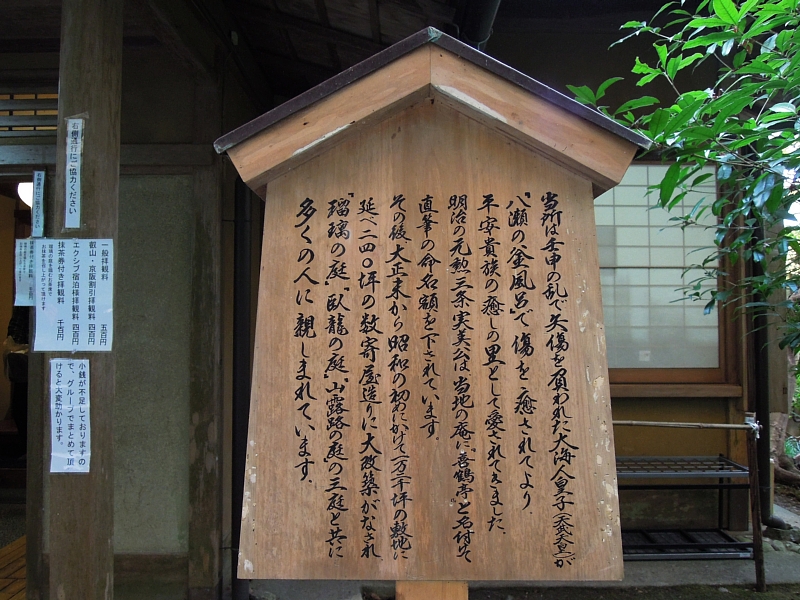 当所は壬申の乱で矢傷を負われた大海人皇子(天武天皇)が
「八瀬の釜風呂」で傷を癒されてより、
平安貴族の癒しの里として愛されてきました。
明治の元勲三条実美公は、当地の庵に「喜鶴亭」と名付けて
直筆の命名額を下されています。
その後、大正末から昭和の初めにかけて一万一千坪の敷地に
延べ二四〇坪の数寄屋造りに大改築がなされ
「瑠璃の庭」「臥龍の庭」「山露路の庭」の三庭と共に
多くの人に親しまれています。
右側通行にご協力ください
一般拝観料 五百円
叡山・京阪割引拝観料 四百円
エクシブ宿泊様拝観料 四百円
抹茶券付き拝観料 千円
小銭が不足しておりますの
で、グループでまとめて頂
けると大変助かります。